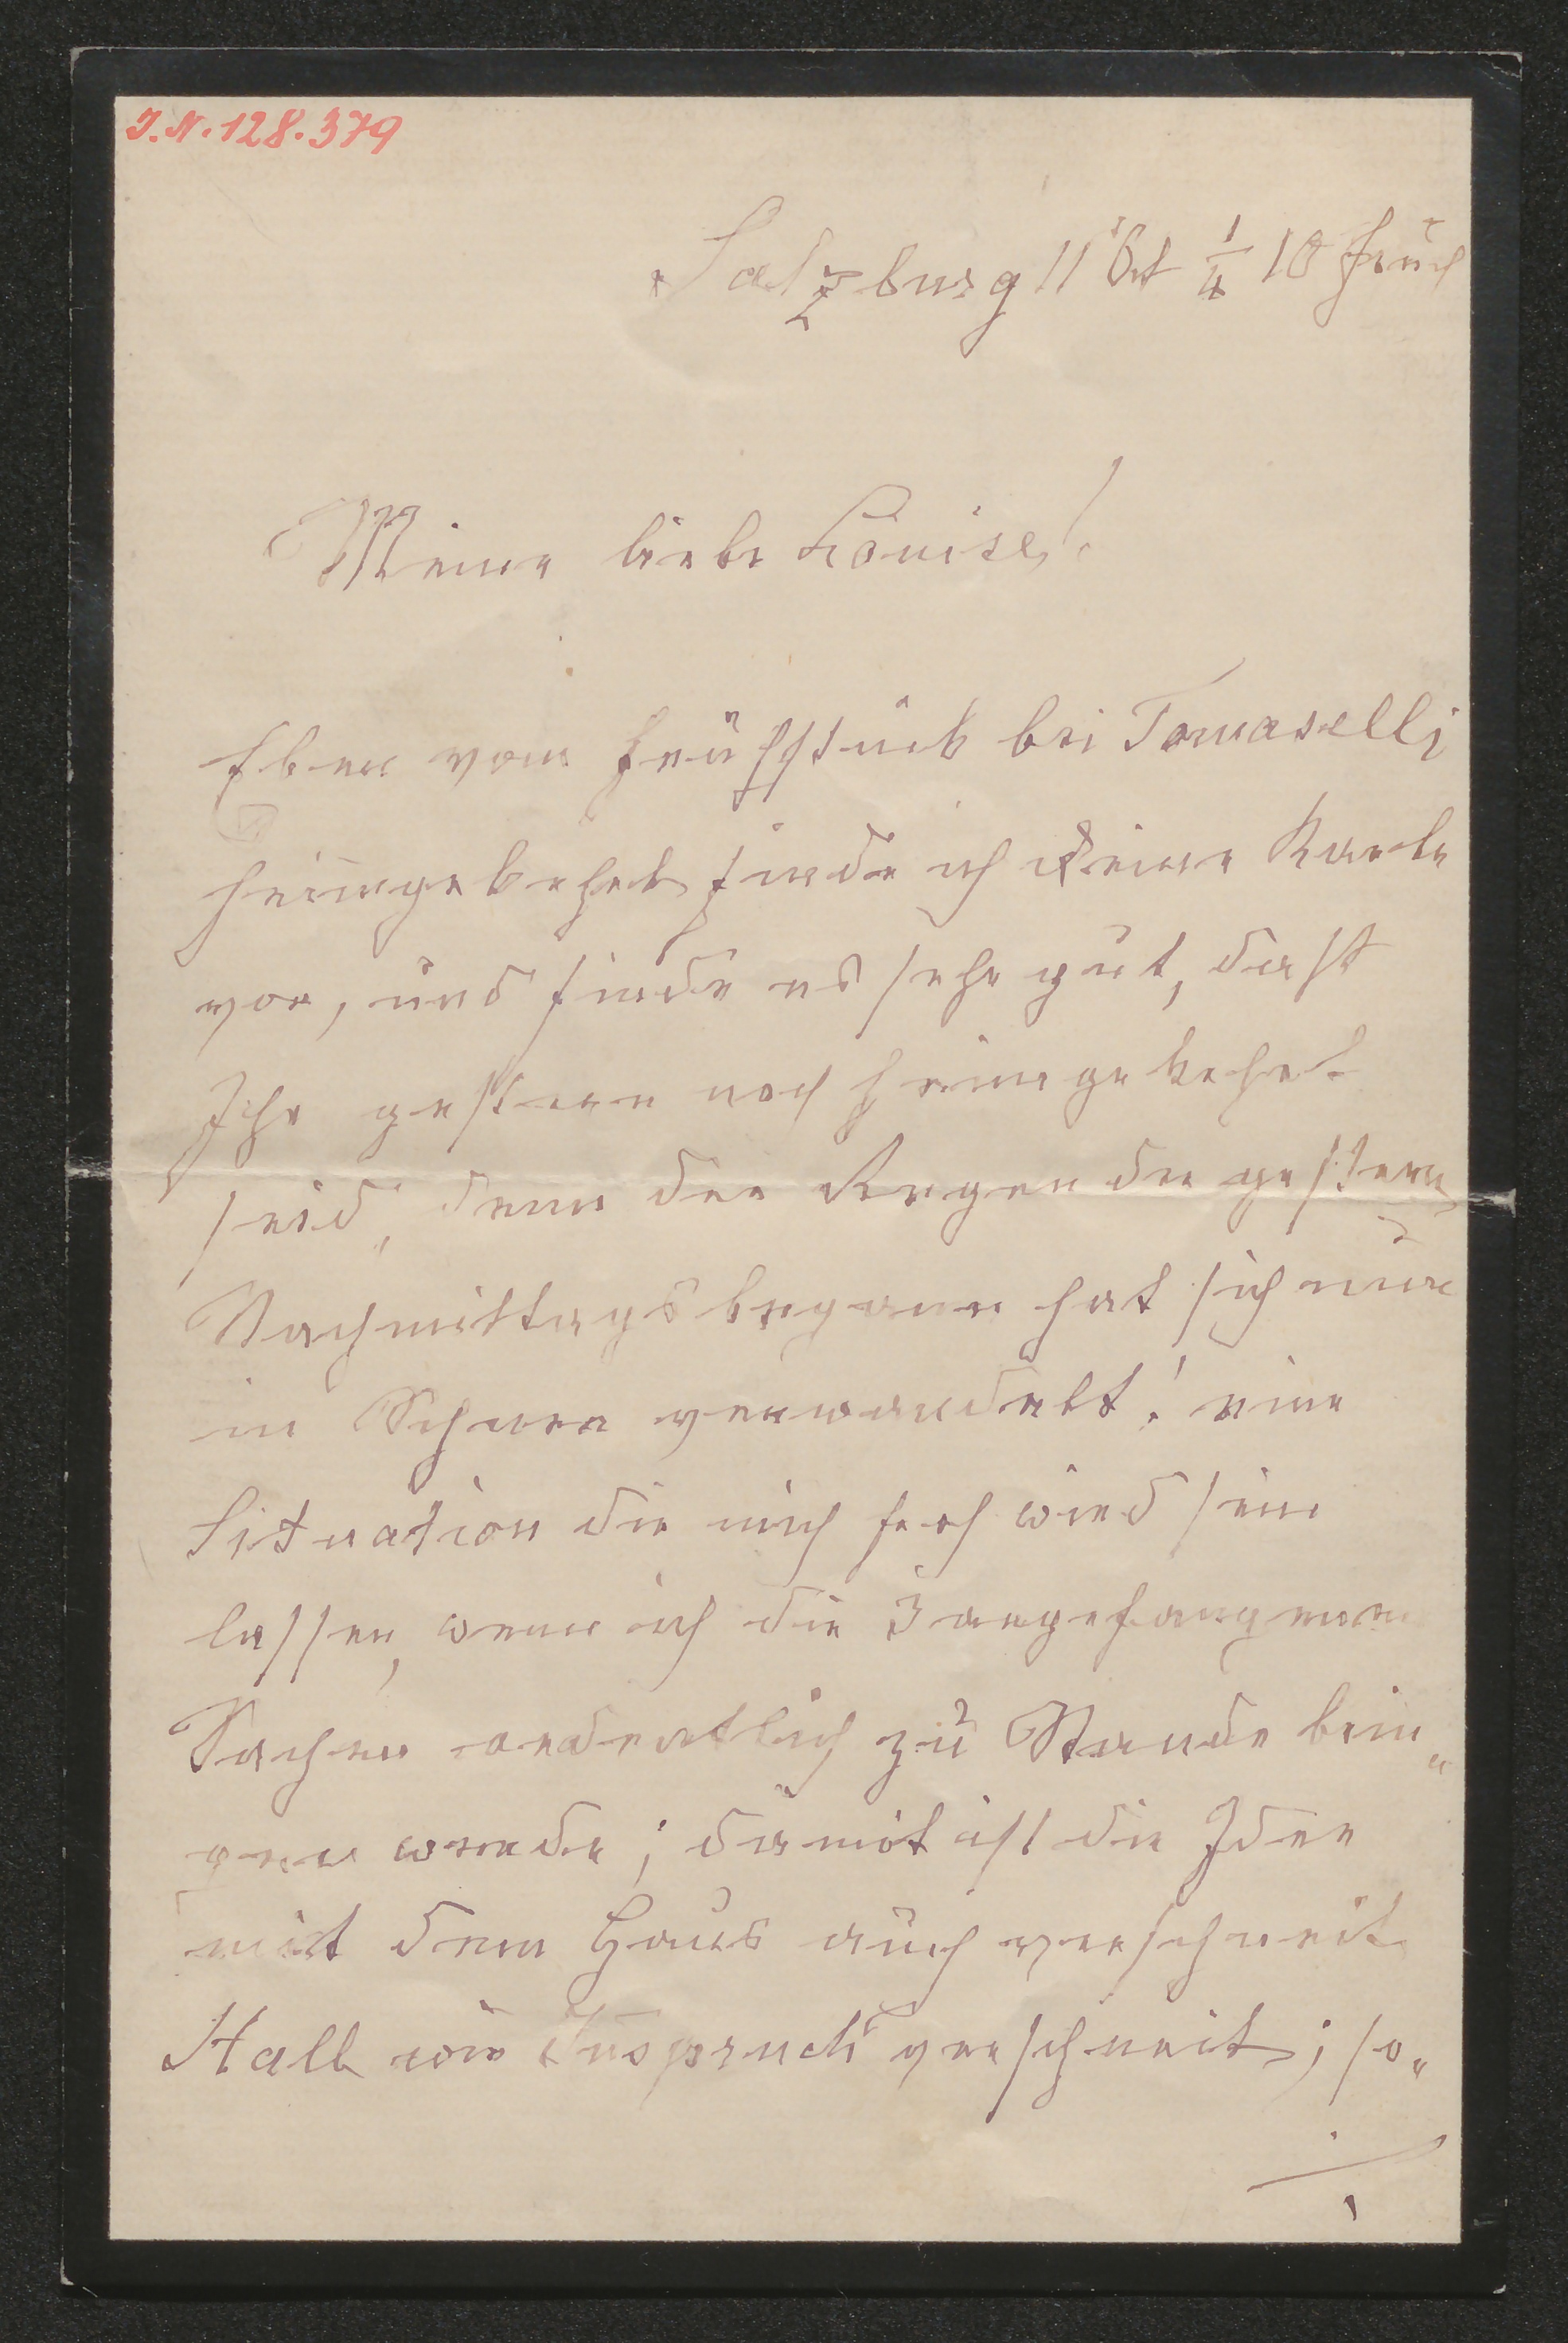 I.N. 128.379
Salzburg 11 Okt 1/4 10 Früh
Meine liebe Louise!
Eben vom Frühstück bei Tomaselli
heimgekehrt finde ich Deine Karte
vor, und finde es sehr gut, dass
Ihr gestern noch heimgekehrt
seid, denn der Regen der gestern
Nachmittags begann hat sich nun
in Schnee verwandelt! eine
Situation die mich froh wird sein
lassen, wenn ich die 3 angefangenen
Sachen ordentlich zu Stande brin„
gen werde; damit ist die Idee
mit dem Haus auch verschneit
Hall wie Inspruck verschneit; so„